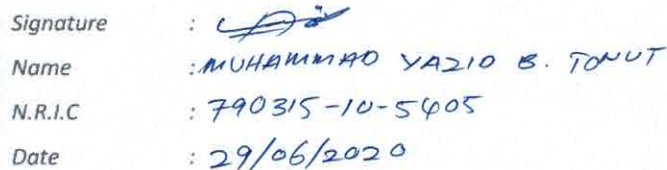 Signature :
Name : MUHAMMAD YAZID B. TONUT
N.R.I.C : 790315-10-5405
Date : 29/06/2020